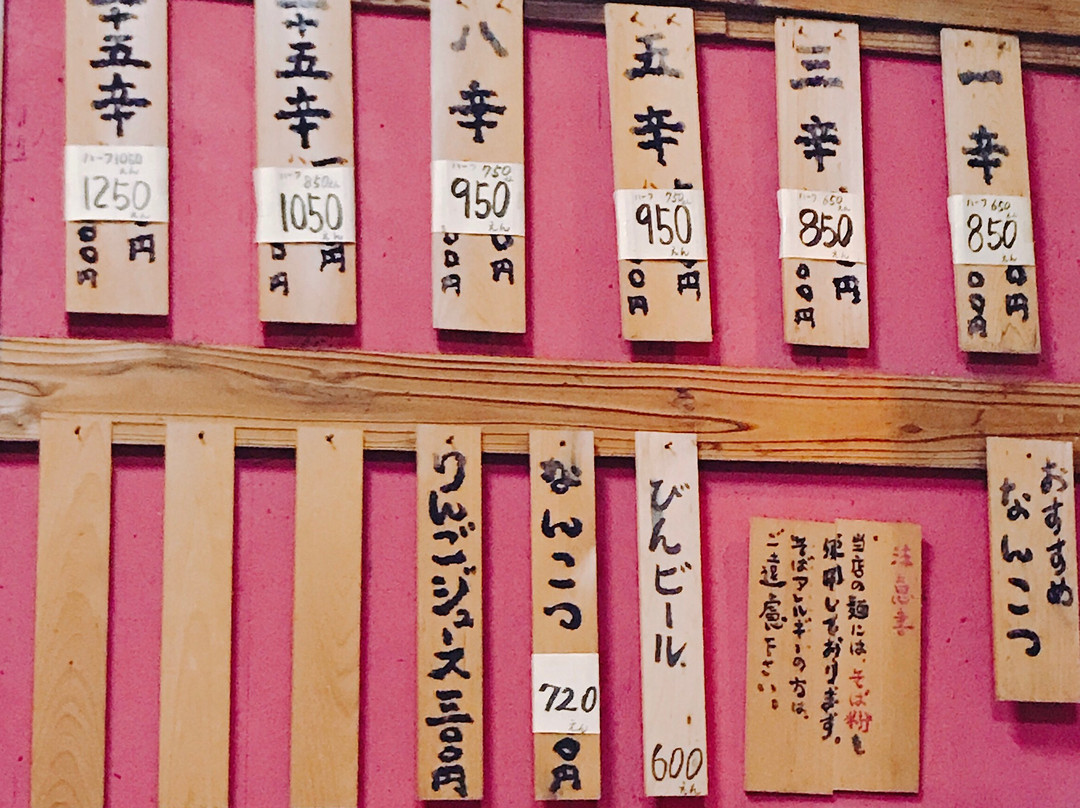 一辛
ハーフ650えん
850えん
〇円
〇〇円
三辛
ハーフ650えん
850えん
円
〇〇円
五辛
ハーフ750えん
950えん
円
〇円
八辛
ハーフ750えん
950えん
円
〇円
十五辛
ハーフ850えん
1050えん
円
円
十五辛
ハーフ1050えん
1250えん
円
〇〇円
おすすめ
なんこつ
注意書
当店の麺には、そば粉も
使用しております。
そばアレルギーの方は、
ご遠慮下さい。
びんビール
600えん
なんこつ
720えん
〇円
りんごジュース三〇〇円